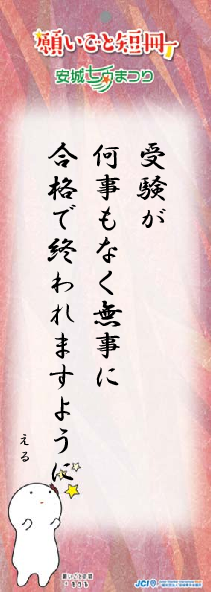 願いごと短冊
安城七夕まつり
受験が
何事もなく無事に
合格で終われますように
える
願いごと短冊
JCI